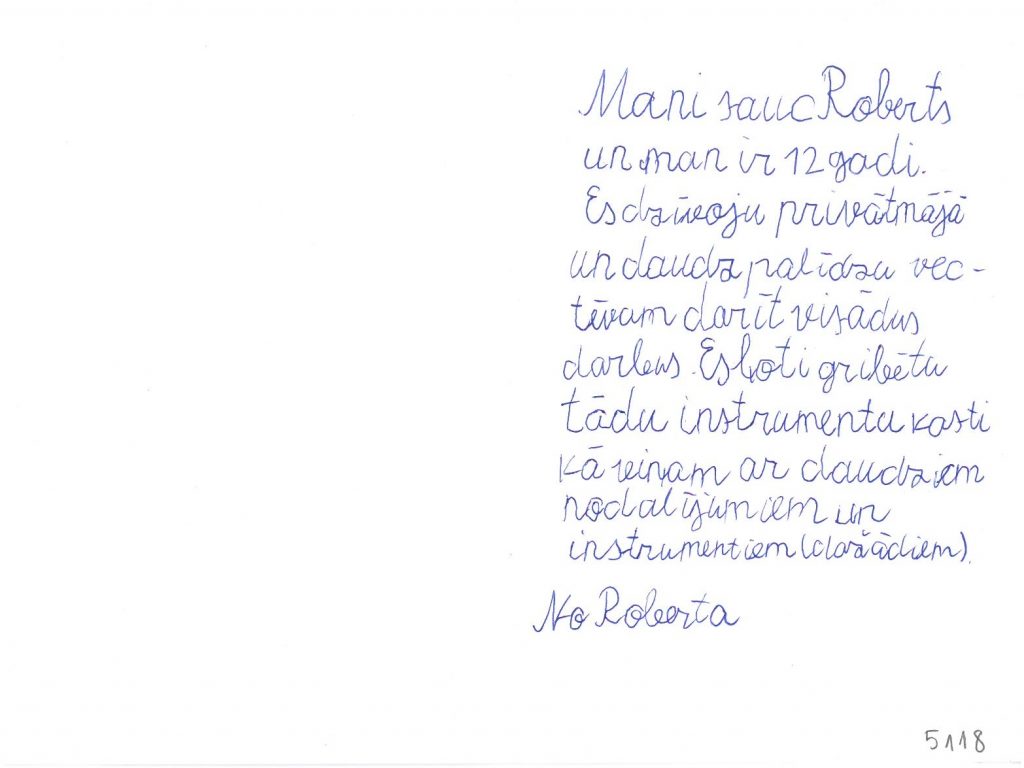 Mani sauc Roberts
un man ir 12 gadi.
Es dzīvoju privātmājā
un daudz palīdzu vec-
tēvam darīt visādus
darbus. Es ļoti gribētu
tādu instrumentu kasti
kā viņam ar daudziem
nodalījumiem un
instrumentiem (dažādiem).
No Roberta
5118